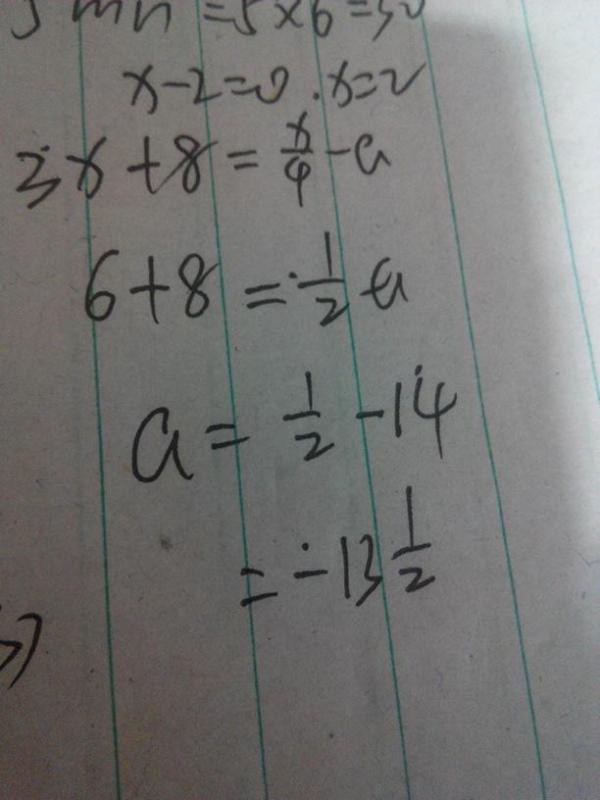 mn = 5×6=30
x-2=0 . x=2
3x+8 = x/4 - a
6+8 = 1/2 - a
a = 1/2 - 14
= -13 1/2